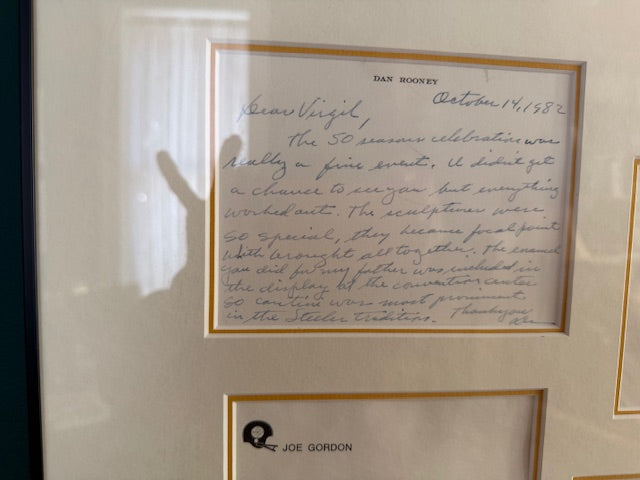 DAN ROONEY
October 14, 1982
Dear Virgil,
The 50 seasons celebration was
really a fine event. I didn't get
a chance to see you but everything
worked out. The sculptures were
so special, they became focal point
which brought all together. The enamel
you did for my father was included in
the display at the convention center
so can time was most prominent
in the Steeler tradition. Thank you
Dan
JOE GORDON